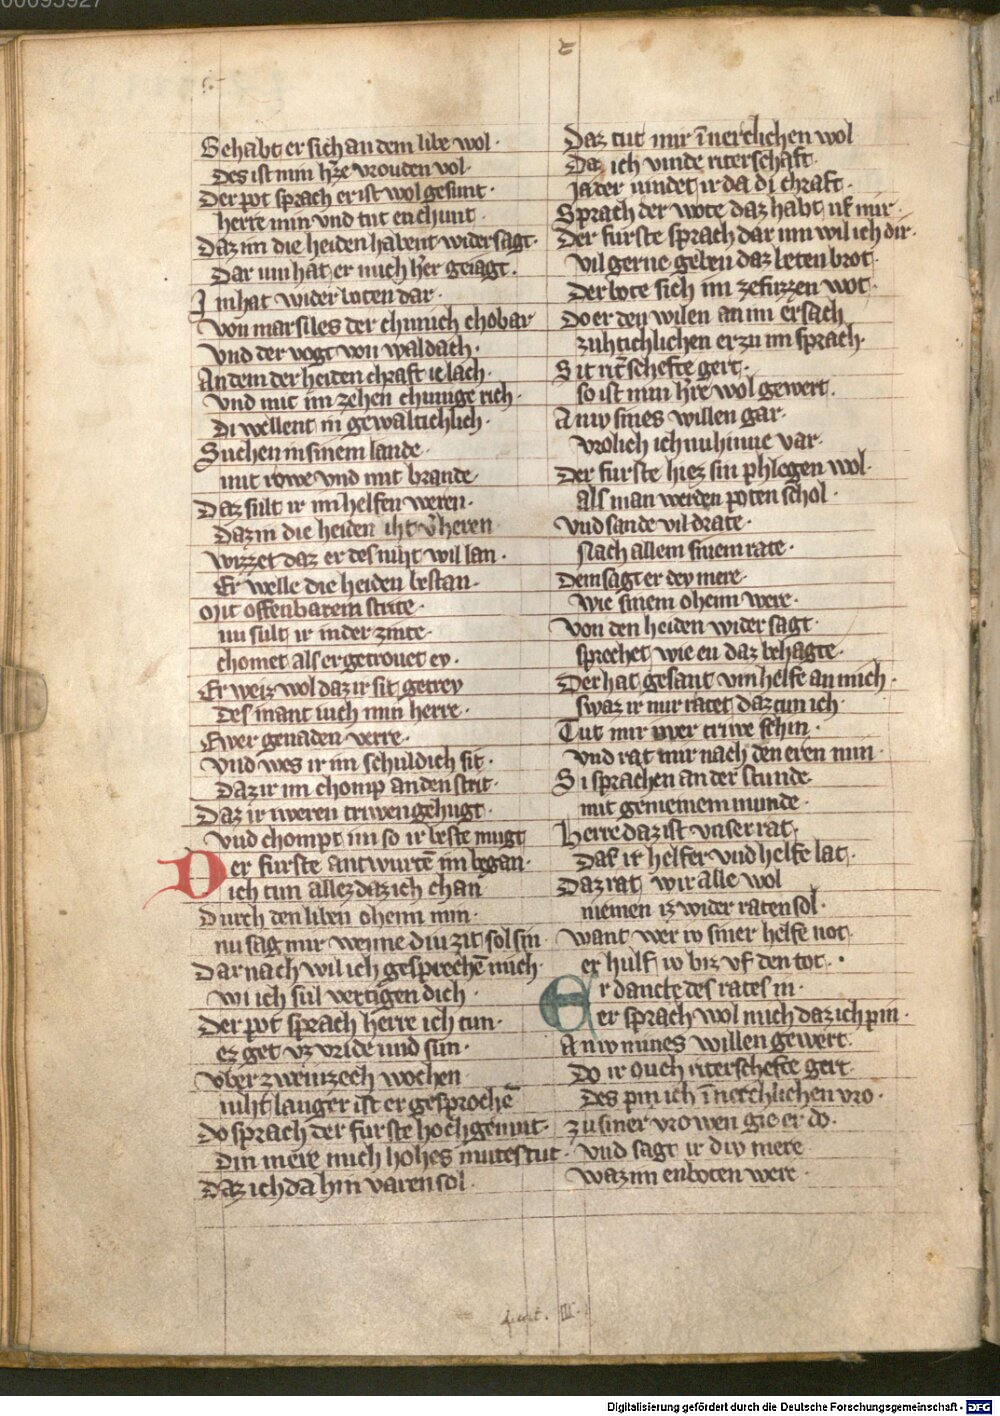 Gehabt er sich an dem libe wol·
Des ist min h͛ze vrouden vol·
Der pot sprach er ist wol gesunt·
herre min vnd tut en chunt·
Daz im die heiden habent widersagt·
Dar um hat er mich h͛er geiagt·
Im hat wider boten dar·
von marsiles der chunich chobar
vnd der vogt von waldach·
An dem der heiden chraft ie lach·
vnd mit im zehen chunige rich·
Di wellent in gewaltichlich·
Suchen in sinem lande·
mit rowe vnd mit brande·
Daz sult ir im helfen weren·
Daz in die heiden iht v͛heren
wizzet daz er des niht wil lan·
Er welle die heiden bestan·
Mit offenbarem strite·
nu sult ir in der zinte·
chomet als er getrouet ev·
Er weiz wol daz ir sit getrev
Des mant iuch min herre·
Ewer genaden verre·
vnd wes ir im schuldich sit·
Daz ir im chomp an den strit·
Daz ir iweren triwen gehugt·
vnd chompt im so ir beste mugt
Der furste antwurtē im began·
ich tun allez daz ich chan
Durch den liben oheim min·
nu sag mir wenne diu zit sol sin·
Dar nach wil ich gesprechē mich·
wi ich sul vertigen dich·
Der pot sprach herre ich tun·
ez get vz vride und sun·
vber zweinzech wochen
niht langer ist er gesprochē
Do sprach der furste hochgemut·
Din mere mich hohes mutes tut·
Daz ich da hin varen sol·
Daz tut mir īnerclichen wol
Da ich vinde riterschaft·
Ja der vindet ir da di chraft·
Sprach der bote daz habt uf mir·
Der furste sprach dar um wil ich dir·
vil gerne geben daz beten brot·
Der bote sich im ze fuzzen bot·
Do er den willen an im ersach
zuhtichlichen er zu im sprach·
Sit rit͛schefte gert·
so ist min h͛re wol gewert·
An iv sines willen gar·
vrolich ich nu hinne var·
Der furste hiez sin phlegen wol·
als man werden poten schol·
vnd sande vil drate·
Nach allem sinem rate·
Dem sagt er dev mere·
wie sinem oheim were·
von den heiden wider sagt·
sprechet wie eu daz behagte·
Der hat gesant vm helfe an mich·
swaz ir mir ratet daz tun ich·
Tut mir iwer triwe schin·
vnd rat mir nach den eren min·
Si sprachen an der stunde·
mit gemeinem munde·
Herre daz ist vnser rat·
Daz ir helfer vnd helfe lat·
Daz rat wir alle wol
niemen iz wider raten sol·
want wer iv siner helfe not·
er hulf iv biz vf den tot·
Er dancte des rates in·
er sprach wol mich daz ich pin·
An iv mines willen gewert·
Do ir ouch riterschefte gert·
Des pin ich īnerchlichen vro·
zu siner vrowen gie er do·
vnd sagt ir div mere
waz im enboten were·
Digitalisierung gefördert durch die Deutsche Forschungsgemeinschaft - DFG